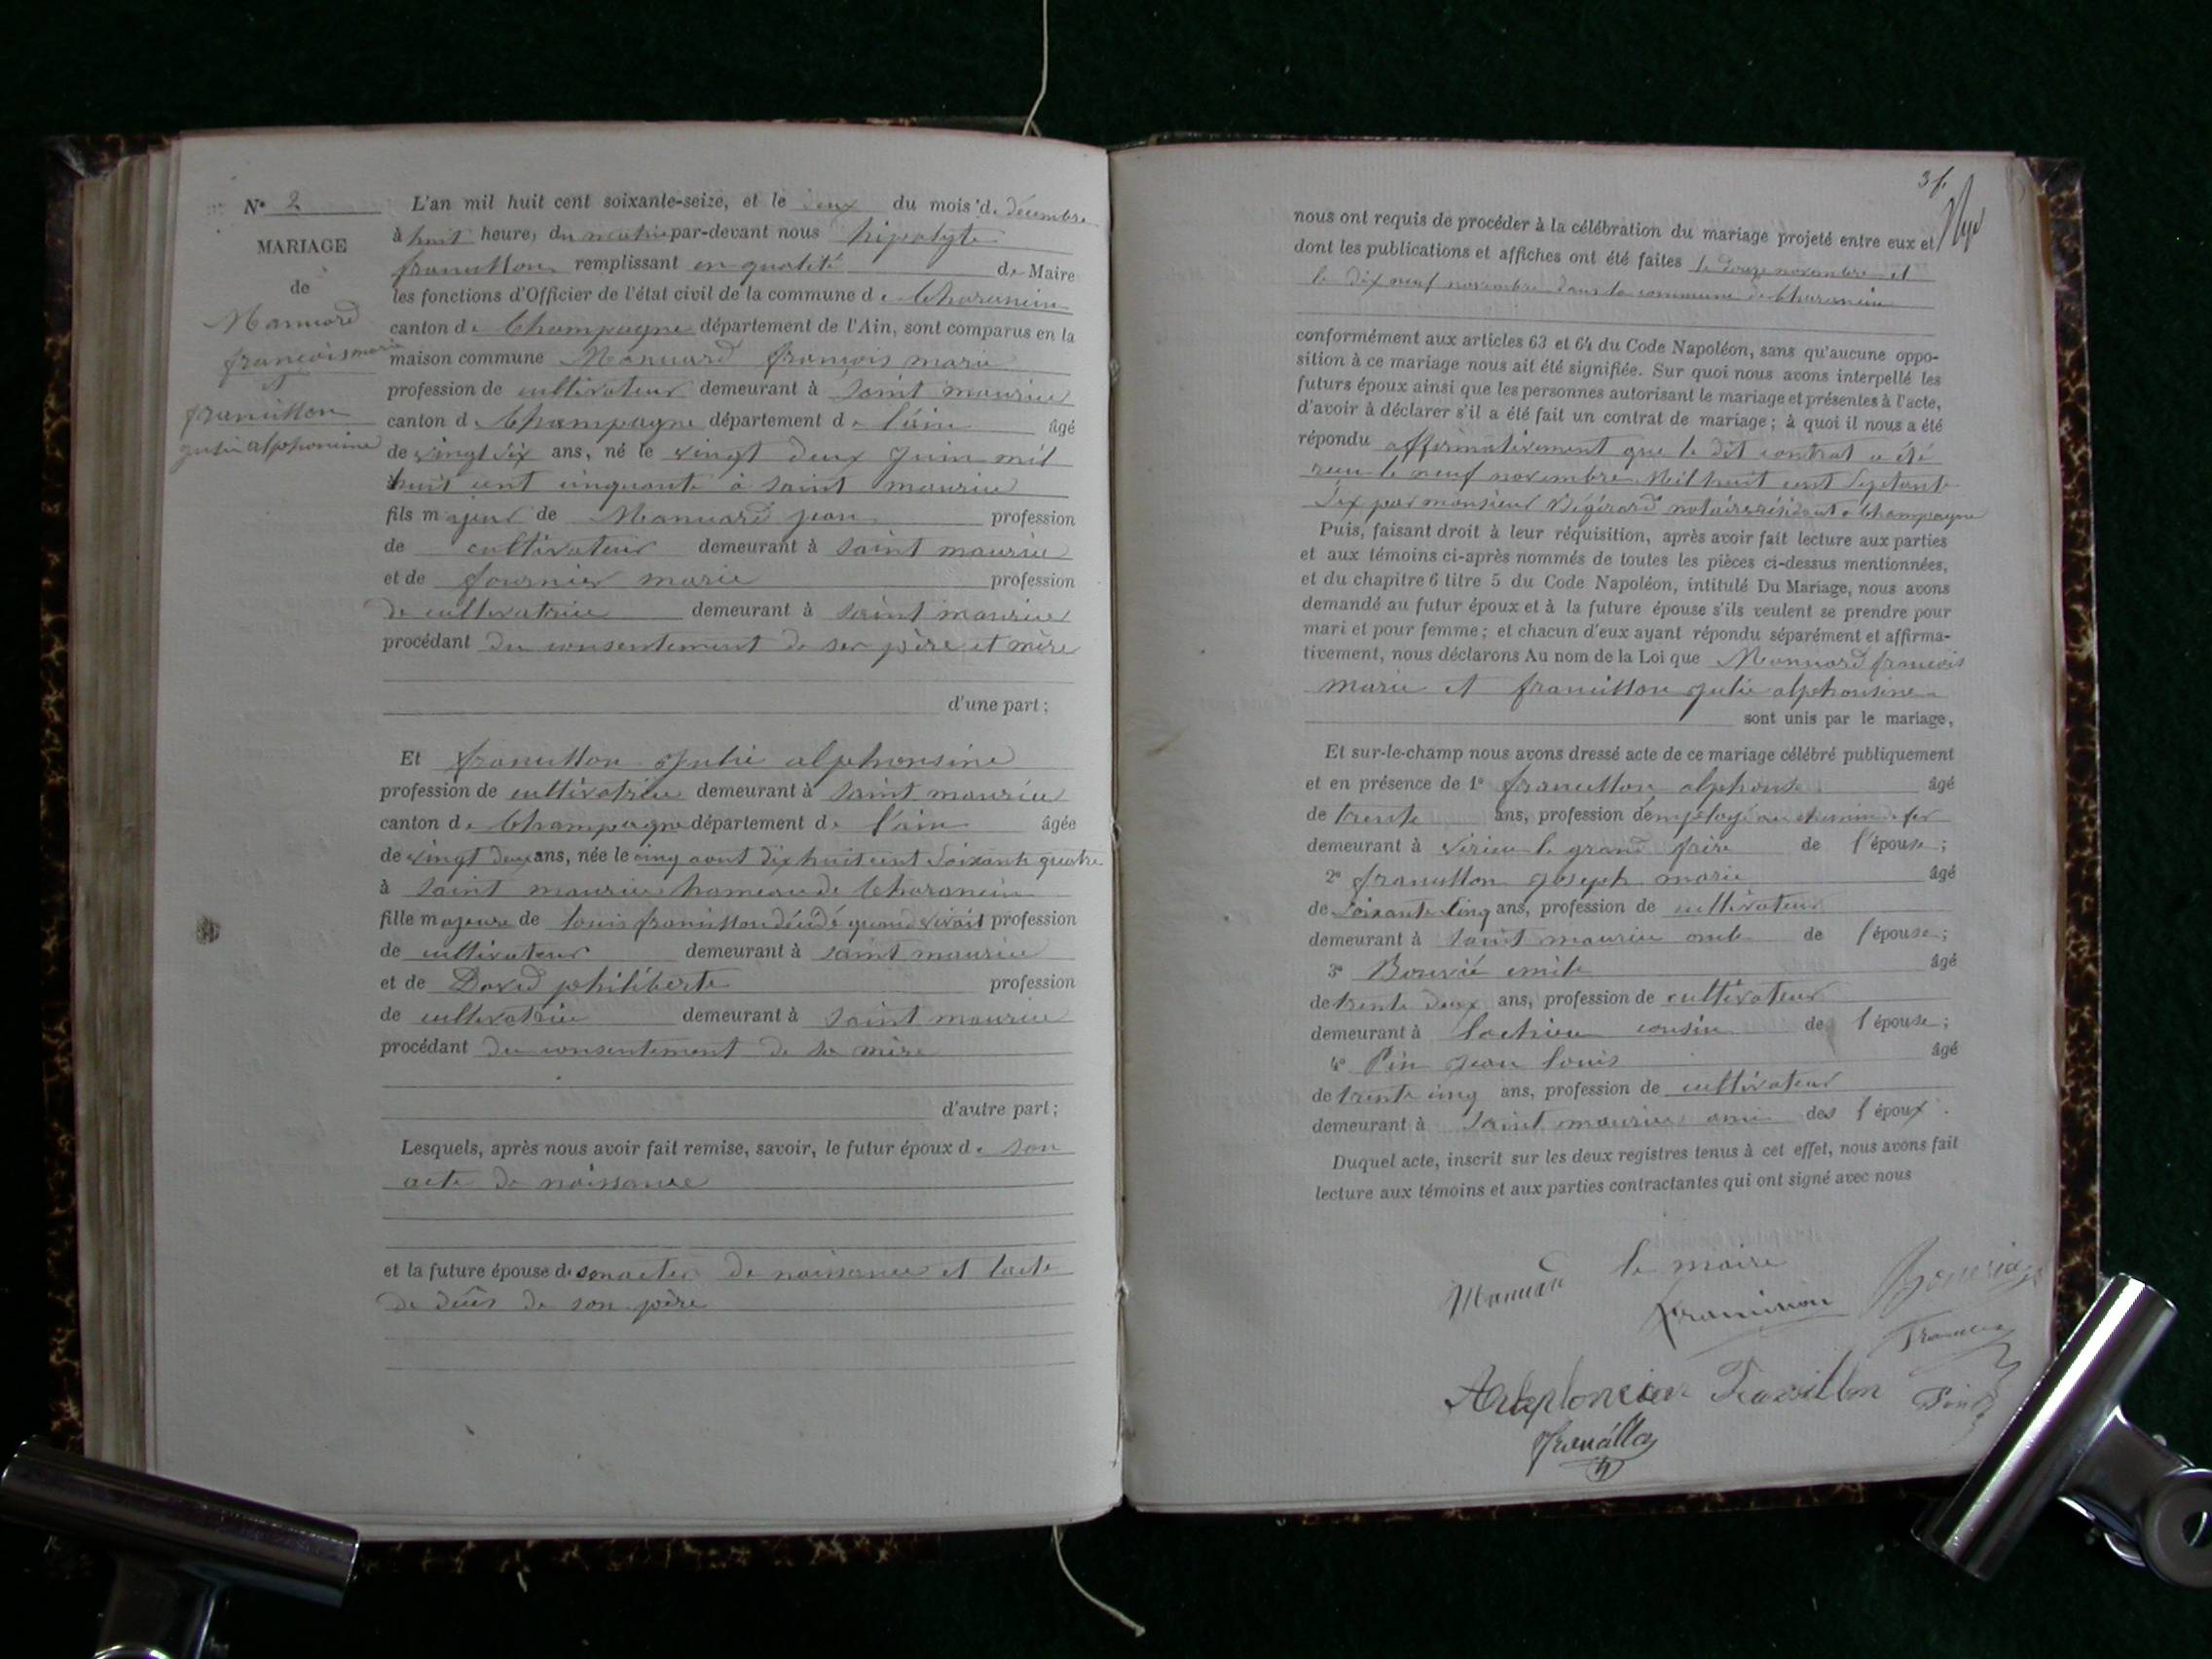 N° 2
MARIAGE
de
Manuard
francois marie
et
francillon
julie alphonsine
L'an mil huit cent soixante-seize, et le deux du mois d. décembre
à huit heure, du matin par-devant nous hipolyte
francillon remplissant en qualité de Maire
les fonctions d'Officier de l'état civil de la commune de Charancin
canton de Champagne département de l'Ain, sont comparus en la
maison commune Manuard françois marie
profession de cultivateur demeurant à saint maurice
canton de Champagne département de l'ain âgé
de vingt six ans, né le vingt deux juin mil
huit cent cinquante à saint maurice
fils majeur de Manuard jean profession
de cultivateur demeurant à saint maurice
et de fournier marie profession
de cultivatrice demeurant à saint maurice
procédant du consentement de ses père et mère
d'une part ;
Et francillon Julie alphonsine
profession de cultivatrice demeurant à saint maurice
canton de Champagne département de l'ain âgée
de vingt deux ans, née le cinq aout dix huit cent soixante quatre
à saint maurice hameau de Charancin
fille majeure de louis francillon décédé quand vivait profession
de cultivateur demeurant à saint maurice
et de David philiberte profession
de cultivatrice demeurant à saint maurice
procédant du consentement de sa mère
d'autre part ;
Lesquels, après nous avoir fait remise, savoir, le futur époux de son
acte de naissance
et la future épouse de son acte de naissance et lacte
de décès de son père
31
nous ont requis de procéder à la célébration du mariage projeté entre eux et
dont les publications et affiches ont été faites le douze novembre et
le dix neuf novembre dans la commune de Charancin
conformément aux articles 63 et 64 du Code Napoléon, sans qu'aucune oppo-
sition à ce mariage nous ait été signifiée. Sur quoi nous avons interpellé les
futurs époux ainsi que les personnes autorisant le mariage et présentes à l'acte,
d'avoir à déclarer s'il a été fait un contrat de mariage ; à quoi il nous a été
répondu affirmativement que le dit contrat a été
recu le neuf novembre Mil huit cent septante
six par monsieur Bégérard notaire résidant a Champagne
Puis, faisant droit à leur réquisition, après avoir fait lecture aux parties
et aux témoins ci-après nommés de toutes les pièces ci-dessus mentionnées,
et du chapitre 6 titre 5 du Code Napoléon, intitulé Du Mariage, nous avons
demandé au futur époux et à la future épouse s'ils veulent se prendre pour
mari et pour femme ; et chacun d'eux ayant répondu séparément et affirma-
tivement, nous déclarons Au nom de la Loi que Manuard francois
marie et francillon julie alphonsine
sont unis par le mariage,
Et sur-le-champ nous avons dressé acte de ce mariage célébré publiquement
et en présence de 1° francillon alphonse âgé
de trente ans, profession demployé au chemin de fer
demeurant à virieu le grand frère de l'épouse ;
2° francillon joseph marie âgé
de soixante cinq ans, profession de cultivateur
demeurant à saint maurice oncle de l'épouse ;
3° Bouvié emile âgé
de trente deux ans, profession de cultivateur
demeurant à lochieu cousin de l'épouse ;
4° Pin jean louis âgé
de trente cinq ans, profession de cultivateur
demeurant à saint maurice ami des époux.
Duquel acte, inscrit sur les deux registres tenus à cet effet, nous avons fait
lecture aux témoins et aux parties contractantes qui ont signé avec nous
le maire
Manuard
francillon
Pin